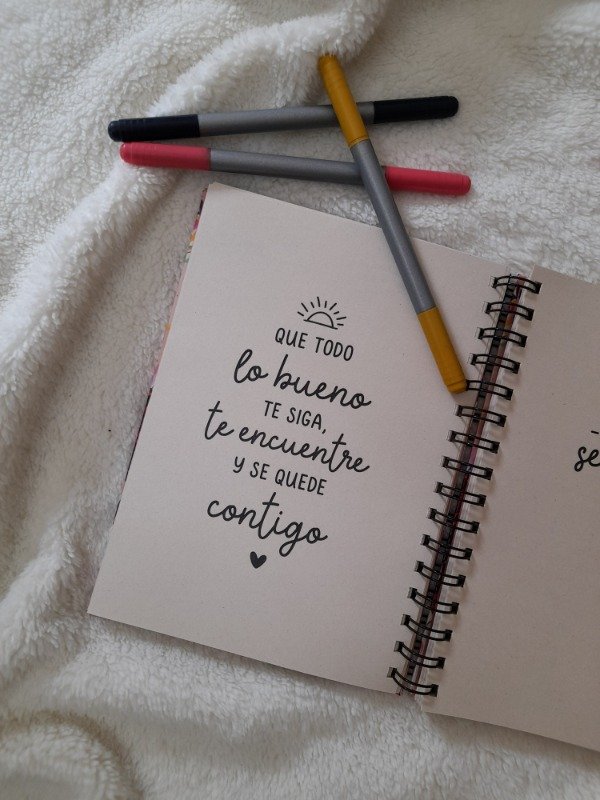 QUE TODO
lo bueno
TE SIGA,
te encuentre
Y SE QUEDE
contigo